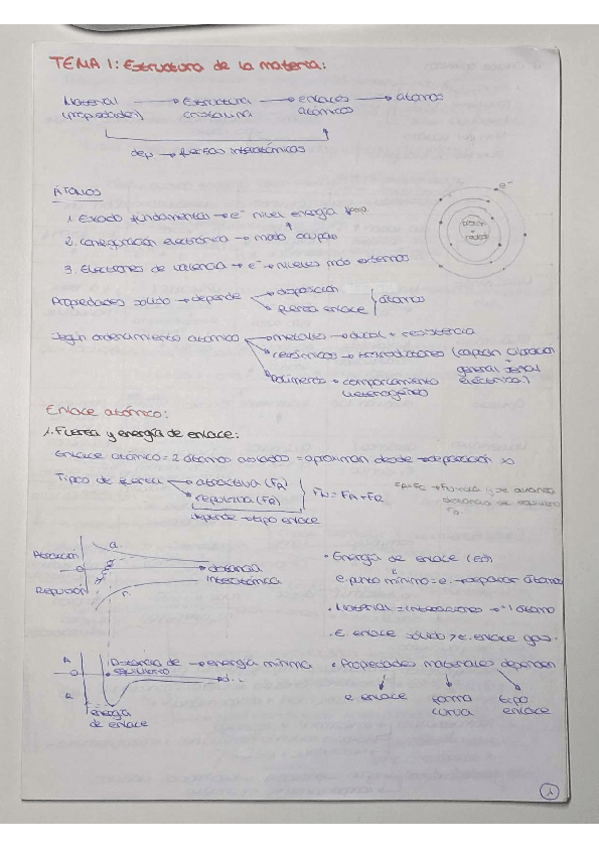 TEMA 1: Estructura de la materia:
Material → Estructura → enlaces → átomos
(propiedades) cristalina atómicos
dep → fuerzas interatómicas
ÁTOMOS
e-
1. Estado fundamental → e- nivel energía
2. Configuración electrónica → modo ocupan
3. Electrones de valencia → e- niveles más externos
Propiedades solido → depende → disposición
fuerza enlace
átomos
Según ordenamiento atómico → metales → ductil + resistencia
cerámicos → (captan vibracion
general señal
polímeros → comportamiento eléctrica)
heterogéneo
Enlace atómico:
1. Fuerza y energía de enlace:
Enlace atómico = 2 átomos aislados = aproximan desde → separación ∞
Tipos de fuerza → atractiva (FA)
repulsiva (FR)
FN = FA + FR
depende → tipo enlace
Atracción
a.
0
distancia
interatómica
Repulsión
r.
• Energía de enlace (E0)
e punto mínimo = e. → separar átomos
• Material = interacciones → +1 átomo
• E enlace sólido > E. enlace gas.
A
0
R
Distancia de → energía mínima
equilibrio
d.i.
Energía
de enlace
• Propiedades materiales dependen
e enlace forma tipo
curva enlace
1